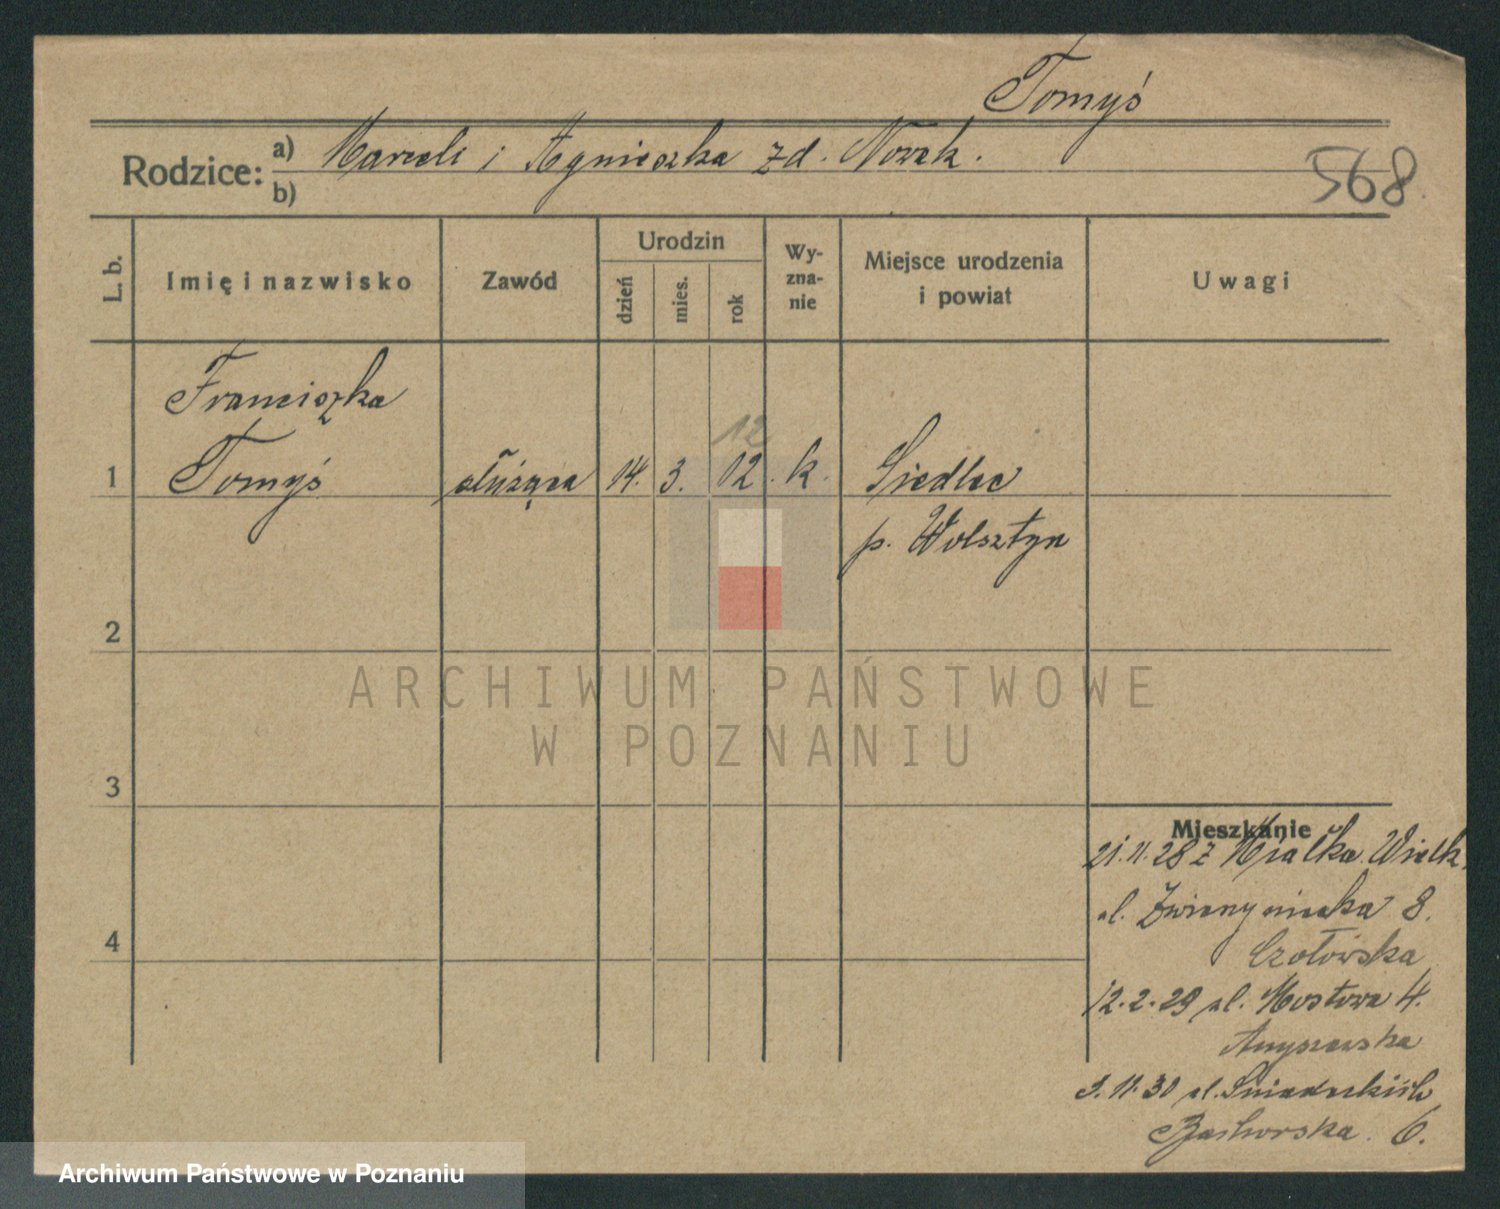 Tomyś
Rodzice: a) Marceli i Agnieszka zd. Nowak.
b)
568
L. b.
Imię i nazwisko
Zawód
Urodzin
dzień
mies.
rok
Wy-
zna-
nie
Miejsce urodzenia
i powiat
Uwagi
Franciszka
12
1 Tomyś służąca 14. 3. 12. k. Siedlec
p. Wolsztyn
2
3
4
ARCHIWUM PAŃSTWOWE
W POZNANIU
Mieszkanie
21.11.28 z Mialka Wielk.
ul. Zwierzyniecka 8.
Czołówska
12.2.29 ul. Mostowa 4.
3.11.30 ul. Śniadeckich
6.
Archiwum Państwowe w Poznaniu